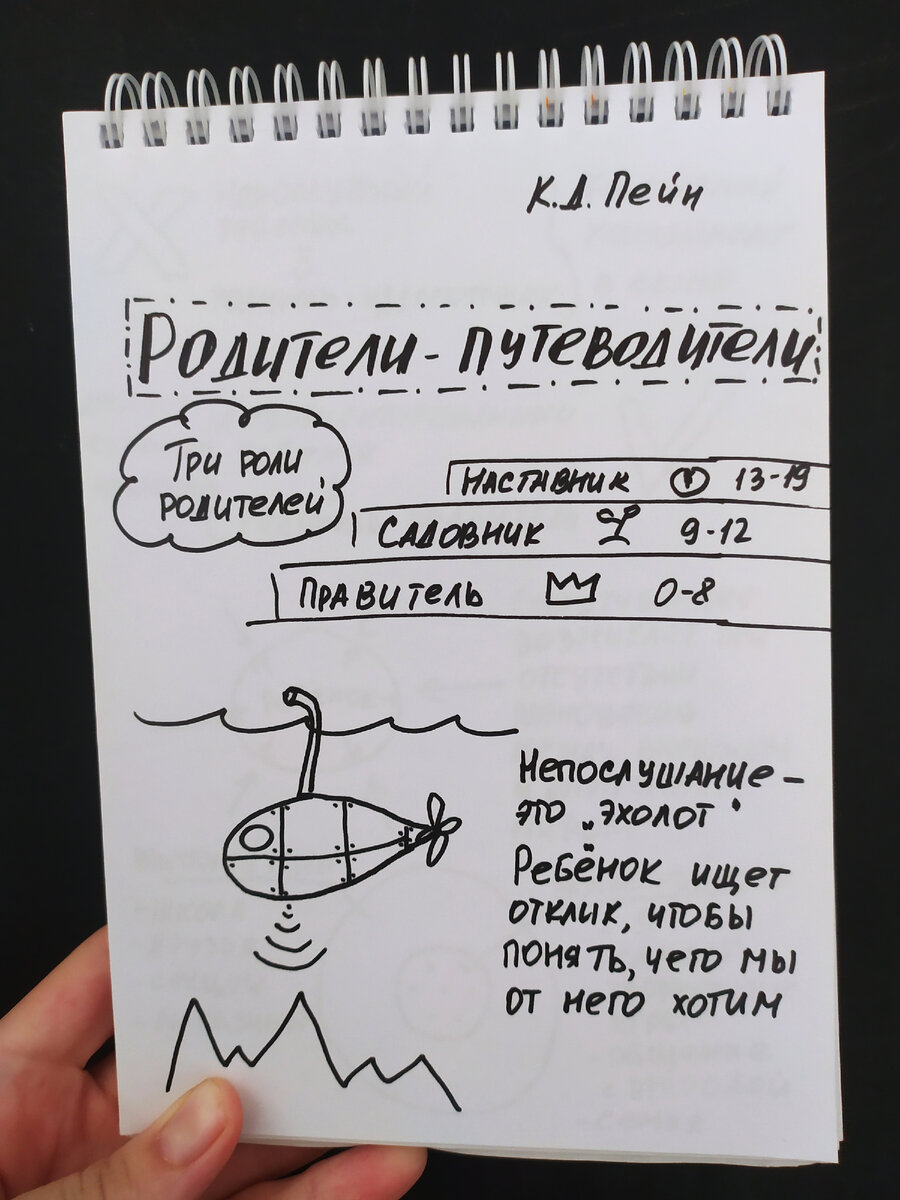 К.Д. Пейн
Родители-путеводители
Три роли
родителей
Наставник 13-19
Садовник 9-12
Правитель 0-8
Непослушание –
это „эхолот"
Ребёнок ищет
отклик, чтобы
понять, чего мы
от него хотим